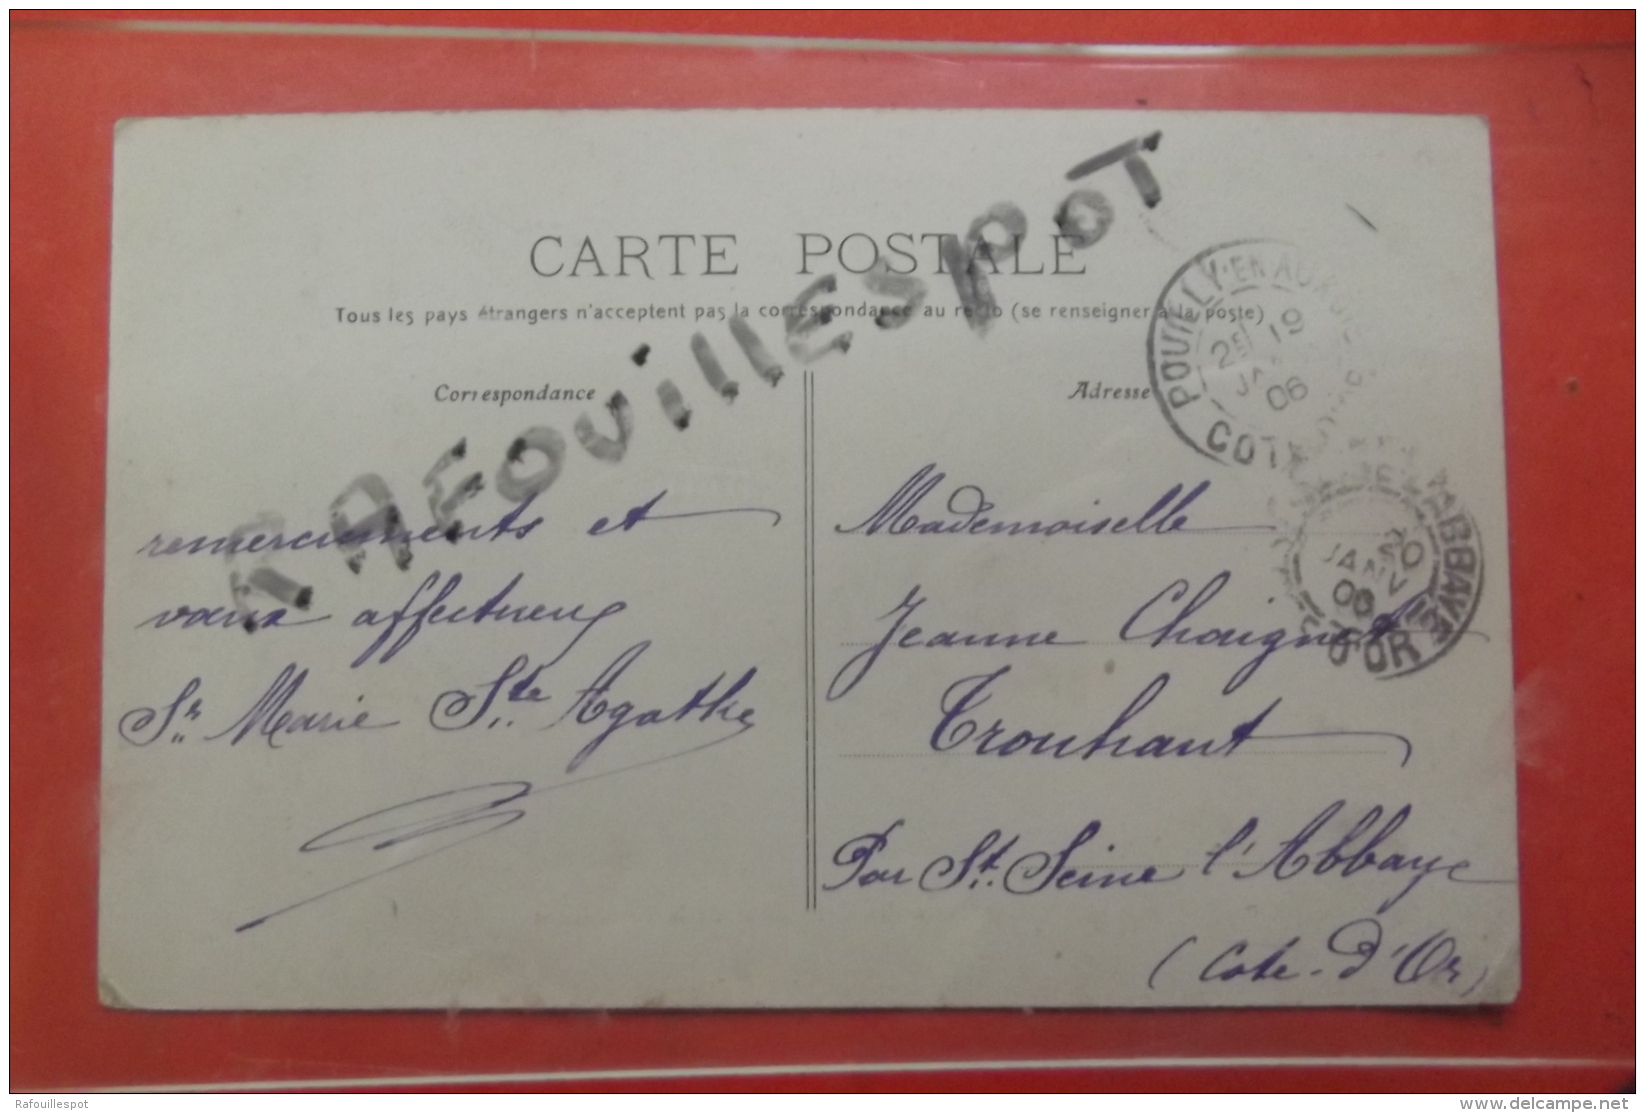 RAFouillespoT
CARTE POSTALE
Tous les pays étrangers n'acceptent pas la correspondance au recto (se renseigner à la poste)
Correspondance
Adresse
remerciements et
vœux affectueux
Sr Marie Ste Agathe
Mademoiselle
Jeanne Choignot
Trouhaut
Par St. Seine l'Abbaye
(Côte-d'Or)
POUILLY-EN-AUXOIS
2E 19
JA
06
COTE
L'ABBAYE
20
JANV
06
D'OR
Rafouillespot
www.delcampe.net